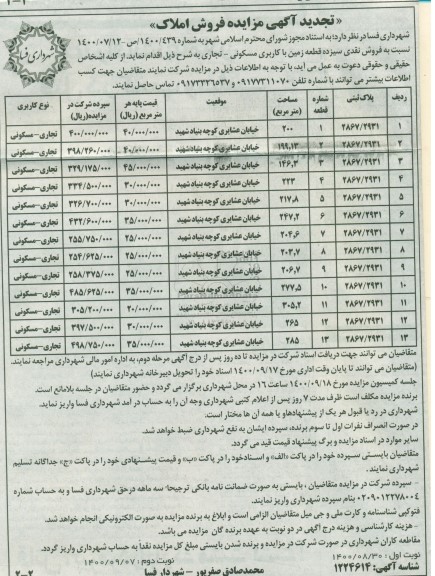 «تجدید آگهی مزایده فروش املاک»
شهرداری فسا
شهرداری فسا در نظر دارد به استناد مجوز شورای محترم اسلامی شهر به شماره ۱۴۰۰/۴۳۹/ص-۱۴۰۰/۰۷/۱۲
نسبت به فروش نقدی سیزده قطعه زمین با کاربری مسکونی - تجاری به شرح ذیل اقدام نماید. از کلیه اشخاص
حقیقی و حقوقی دعوت به عمل می آید، با توجه به اطلاعات ذیل در مزایده شرکت نمایند متقاضیان جهت کسب
اطلاعات بیشتر می توانند با شماره تلفن ۰۹۱۷۷۳۱۱۰۷۰ و ۰۹۱۷۳۳۳۶۰۳۷ تماس حاصل نمایند.
ردیف پلاک ثبتی شماره قطعه مساحت (متر مربع) موقعیت قیمت پایه هر متر مربع (ریال) سپرده شرکت در مزایده(ریال) نوع کاربری
۱ ۲۸۶۷/۲۹۳۱ ۱ ۲۰۰ خیابان عشایری کوچه بنیاد شهید ۴۰/۰۰۰/۰۰۰ ۴۰۰/۰۰۰/۰۰۰ تجاری-مسکونی
۲ ۲۸۶۷/۲۹۳۱ ۲ ۱۹۹,۱۳ خیابان عشایری کوچه بنیاد شهید ۴۰/۰۰۰/۰۰۰ ۳۹۸/۲۶۰/۰۰۰ تجاری-مسکونی
۳ ۲۸۶۷/۲۹۳۱ ۳ ۱۴۶,۳ خیابان عشایری کوچه بنیاد شهید ۴۵/۰۰۰/۰۰۰ ۳۲۹/۱۷۵/۰۰۰ تجاری-مسکونی
۴ ۲۸۶۷/۲۹۳۱ ۴ ۲۲۳ خیابان عشایری کوچه بنیاد شهید ۳۰/۰۰۰/۰۰۰ ۳۳۴/۵۰۰/۰۰۰ تجاری-مسکونی
۵ ۲۸۶۷/۲۹۳۱ ۵ ۲۱۷,۸ خیابان عشایری کوچه بنیاد شهید ۳۰/۰۰۰/۰۰۰ ۳۲۶/۷۰۰/۰۰۰ تجاری-مسکونی
۶ ۲۸۶۷/۲۹۳۱ ۶ ۲۴۷,۲ خیابان عشایری کوچه بنیاد شهید ۳۵/۰۰۰/۰۰۰ ۴۳۲/۶۰۰/۰۰۰ تجاری-مسکونی
۷ ۲۸۶۷/۲۹۳۱ ۷ ۲۰۴,۶ خیابان عشایری کوچه بنیاد شهید ۲۵/۰۰۰/۰۰۰ ۲۵۵/۷۵۰/۰۰۰ تجاری-مسکونی
۸ ۲۸۶۷/۲۹۳۱ ۸ ۲۰۳,۷ خیابان عشایری کوچه بنیاد شهید ۲۵/۰۰۰/۰۰۰ ۲۵۴/۶۲۵/۰۰۰ تجاری-مسکونی
۹ ۲۸۶۷/۲۹۳۱ ۹ ۲۰۶,۷ خیابان عشایری کوچه بنیاد شهید ۲۵/۰۰۰/۰۰۰ ۲۵۸/۳۷۵/۰۰۰ تجاری-مسکونی
۱۰ ۲۸۶۷/۲۹۳۱ ۱۰ ۲۷۷,۵ خیابان عشایری کوچه بنیاد شهید ۳۵/۰۰۰/۰۰۰ ۴۸۵/۶۲۵/۰۰۰ تجاری-مسکونی
۱۱ ۲۸۶۷/۲۹۳۱ ۱۱ ۳۰۵,۲ خیابان عشایری کوچه بنیاد شهید ۲۰/۰۰۰/۰۰۰ ۳۰۵/۲۰۰/۰۰۰ تجاری-مسکونی
۱۲ ۲۸۶۷/۲۹۳۱ ۱۲ ۲۶۵ خیابان عشایری کوچه بنیاد شهید ۳۰/۰۰۰/۰۰۰ ۳۹۷/۵۰۰/۰۰۰ تجاری-مسکونی
۱۳ ۲۸۶۷/۲۹۳۱ ۱۳ ۲۸۵ خیابان عشایری کوچه بنیاد شهید ۳۵/۰۰۰/۰۰۰ ۴۹۸/۷۵۰/۰۰۰ تجاری-مسکونی
متقاضیان می توانند جهت دریافت اسناد شرکت در مزایده تا ده روز پس از درج آگهی مرحله دوم، به اداره امور مالی شهرداری مراجعه نمایند.
(متقاضیان می توانند تا پایان وقت اداری مورخ ۱۴۰۰/۰۹/۱۷ اسناد خود را تحویل دبیرخانه شهرداری نمایند)
جلسه کمیسیون مزایده مورخ ۱۴۰۰/۰۹/۱۸ ساعت ۱۶ در محل شهرداری برگزار می گردد و حضور متقاضیان در جلسه بلامانع است.
برنده مزایده مکلف است ظرف مدت ۷ روز پس از اعلام کتبی شهرداری وجه آن را به حساب در آمد شهرداری فسا واریز نماید.
شهرداری در رد یا قبول هر یک از پیشنهادهاو یا همه آن ها مختار است.
در صورت انصراف نفرات اول تا سوم برنده، سپرده ایشان به نفع شهرداری ضبط خواهد شد.
سایر موارد در اسناد مزایده و برگ پیشنهاد قیمت قید می گردد.
متقاضیان بایستی سپرده خود را در پاکت «الف» و اسنادخود را در پاکت «ب» و قیمت پیشنهادی خود را در پاکت «ج» جداگانه تسلیم
شهرداری نمایند.
- سپرده شرکت در مزایده متقاضیان ، بایستی به صورت ضمانت نامه بانکی ترجیحا سه ماهه درحق شهرداری فسا و به حساب شماره
۰۲۰۹۰۱۲۲۷۸۰۰۴ بنام سپرده شهرداری واریز نمایند.
فتوکپی شناسنامه و کارت ملی و جی میل متقاضیان الزامی است و ابلاغ به برنده مزایده به صورت الکترونیکی انجام خواهد شد.
- هزینه کارشناسی و هزینه درج آگهی در دو نوبت به عهده برنده گان مزایده می باشد.
مقاطعه کاران شهرداری در صورت شرکت در مزایده و برنده شدن بایستی مبلغ کل مزایده نقداً به حساب شهرداری واریز گردد.
نوبت اول : ۱۴۰۰/۰۸/۳۰ نوبت دوم : ۱۴۰۰/۰۹/۰۷
شناسه آگهی: ۱۲۲۴۶۱۴ محمدصادق صفرپور - شهردار فسا ۲-۲